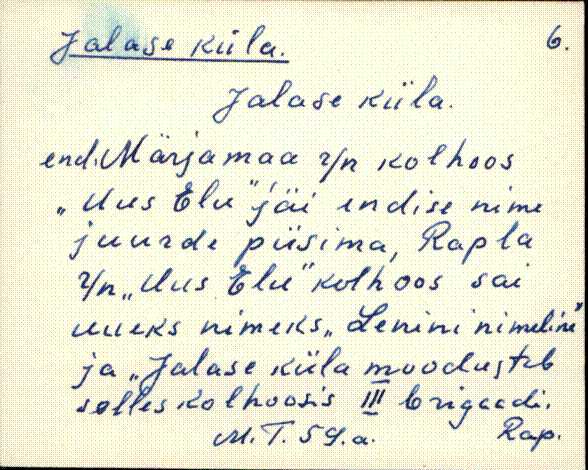 Jalase küla. 6.
Jalase küla.
end. Märjamaa r/n kolhoos
„Uus Elu" jäi endise nime
juurde püsima, Rapla
r/n „Uus Elu" kolhoos sai
uueks nimeks „Lenini nimeline"
ja „Jalase küla moodustab
selles kolhoosis III brigaadi.
M.T. 59.a. Rap.